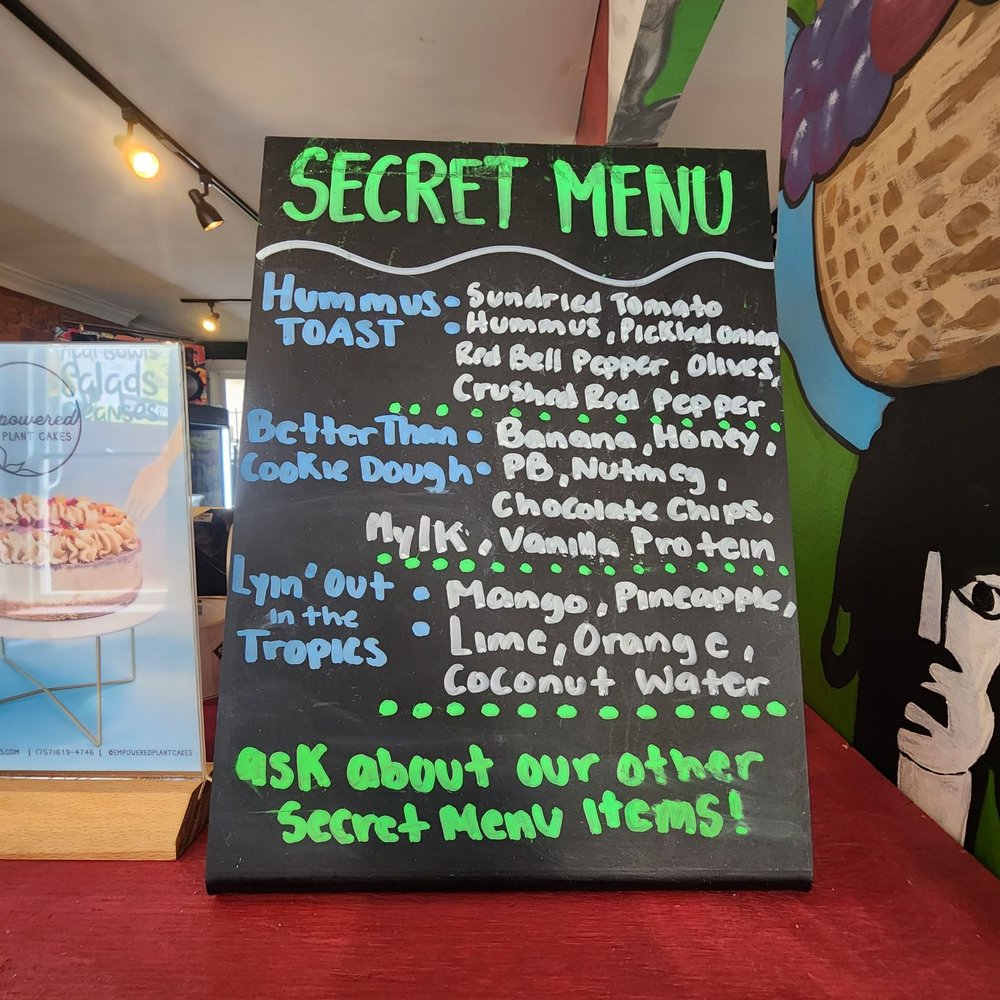 SECRET MENU
Hummus • Sundried Tomato
TOAST • Hummus, Pickled onion
Red Bell Pepper, Olives,
Crushed Red Pepper
Better Than • Banana, Honey,
Cookie Dough • PB, Nutmeg,
Chocolate Chips,
Mylk, Vanilla Protein
Lyin' Out • Mango, Pineapple,
in the • Lime, Orange,
Tropics
Coconut Water
ask about our other
Secret Menu Items!
Bowls
Salads
PLANT CAKES
(757)619-4746 | @EMPOWEREDPLANTCAKES